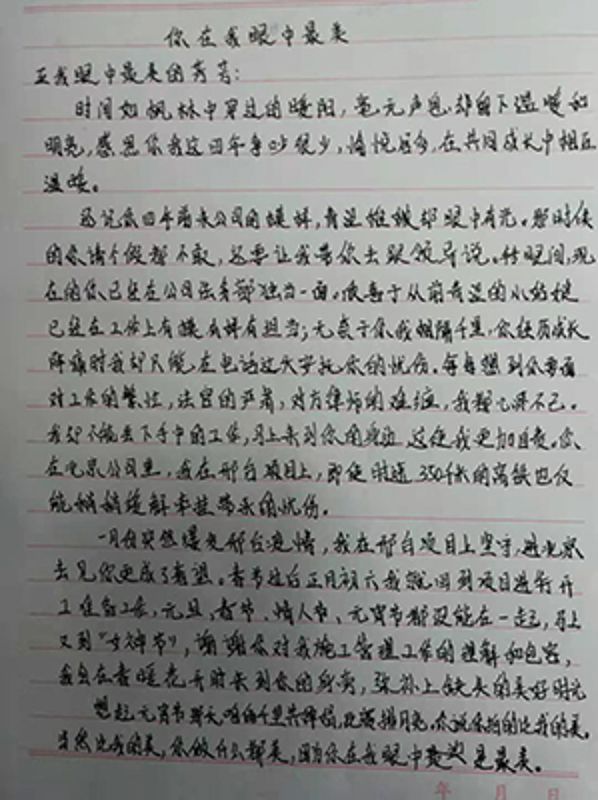 你在我眼中最美
至我眼中最美的芳芳:
时间如枫林中穿过的暖阳,毫无声息却留下温暖和
明亮,感恩你我这四年争吵很少,愉悦居多,在共同成长中相互
温暖。
还记你四年前来公司的模样,青涩稚嫩却眼中有光。那时候
的你请个假都不敢,还要让我带你去跟领导说。转眼间,现
在的你已经在公司法务部独当一面。很喜于从前青涩的小姑娘
已经在工作上有模有样有担当;无奈于你我相隔千里,你经历成长
阵痛时我却只能在电话这头安抚你的忧伤。每每想到你要面
对工作的繁忙,法官的严肃,对方律师的难缠,我都心疼不已。
我却不能丢下手中的工作,马上来到你的身边,这使我更加自责。你
在北京公司里,我在邢台项目上,即使时速350千米的高铁也仅
能稍稍缓解牵挂带来的忧伤。
一月份突然爆发邢台疫情,我在邢台项目上坚守,进北京
去见你更成了奢望。春节过后正月初六我就回到项目进行开
工准备工作,元旦、春节、情人节、元宵节都没能在一起,马上
又到“女神节”,谢谢你对我施工管理工作的理解和包容,
我会在春暖花开时来到你的身旁,弥补上缺失的美好时光
想起元宵节那天咱俩千里共婵娟,
你说你拍的比我的美,
当然比我的美,你做什么都美,因为你在我眼中是最美。
年 月 日